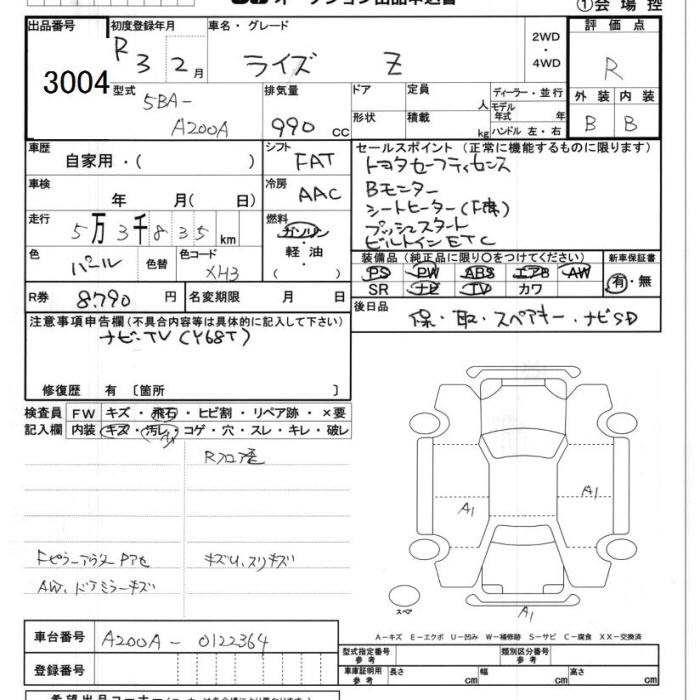 出品申込書
①会場控
出品番号 初度登録年月 車名・グレード 2WD・4WD 評価点
3004 R3 2月 ライズ Z R
型式 排気量 ドア 定員 人 ディーラー・並行 外装 内装
5BA-A200A 990 cc 形状 積載 kg モデル年式 年 ハンドル 左・右 B B
車歴 シフト セールスポイント(正常に機能するものに限ります)
自家用・( ) FAT トヨタセーフティセンス
車検 冷房 Bモニター
年 月( 日) AAC シートヒーター(F席)
走行 燃料 プッシュスタート
5万3千835km ガソリン・軽油( ) ビルトインETC
色 色替 色コード 装備品(純正品に限り○をつけてください) 新車保証書
パール XH3 PS PW ABS エアB AW 有・無
SR ナビ TV カワ
R券 8790円 名変期限 月 日 後日品
保・取・スペアキー・ナビSD
注意事項申告欄(不具合内容等は具体的に記入して下さい)
ナビ-TV(Y68T)
修復歴 有〔箇所 〕
検査員 FW キズ・飛石・ヒビ割・リペア跡・×要
記入欄 内装 キズ・汚レ・コゲ・穴・スレ・キレ・破レ
Rフロア歪
Fピラーアウターアセ キズU、スリキズ
AW、ドアミラーキズ
A1
A1
A1
スペア
A-キズ E-エクボ U-凹み W-補修跡 S-サビ C-腐食 XX-交換済
車台番号 A200A-0122364
型式指定番号 参考 類別区分番号 参考
登録番号 車庫証明用 参考 長さ cm 幅 cm 高さ cm
希望出品コーナー